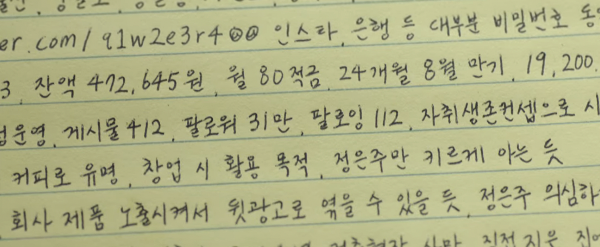 er.com/q1w2e3r4@@ 인스타, 은행 등 대부분 비밀번호 동
3, 잔액 472,645원, 월 80적금, 24개월 8월 만기, 19,200.
운영, 게시물 412, 팔로워 31만, 팔로잉 112, 자취생존컨셉으로 시
커피로 유명, 창업 시 활용 목적, 정은주만 키르케 아는 듯
회사 제품 노출시켜서 뒷광고로 엮을 수 있을 듯, 정은주 의심하